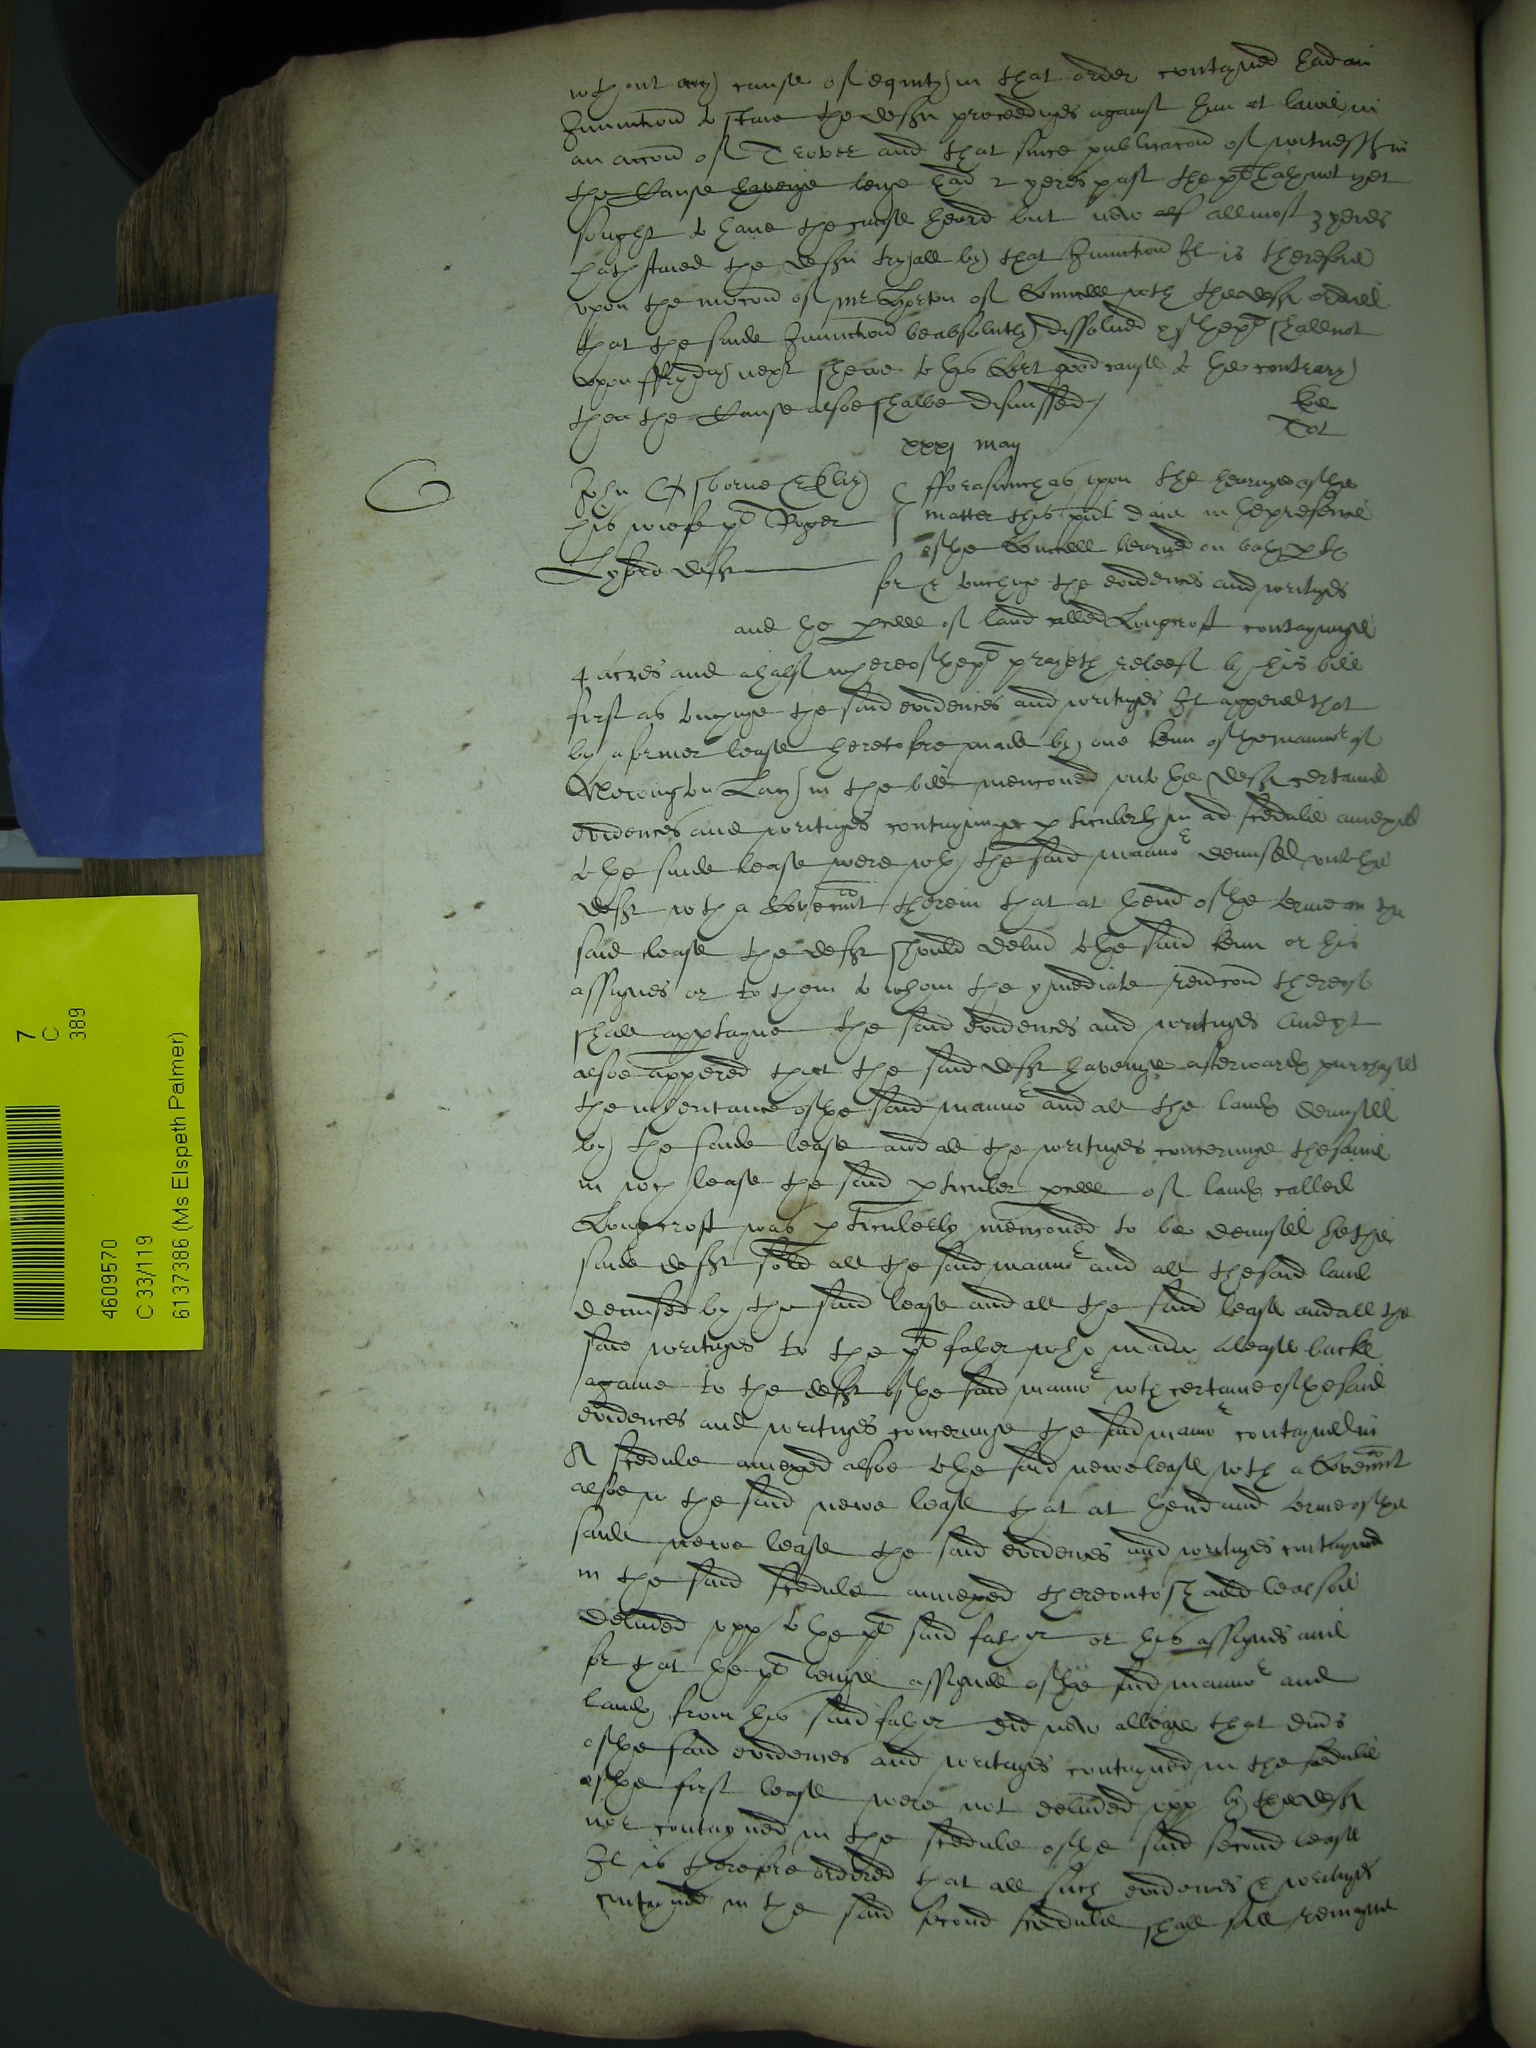 without any cause of equity in that order contayned had an
Iniunction to staie the defts proceedinges against him at lawe in
an accon of Trover and that since publicacon of witnesses in
the Cause havenge benge had 2 yeres past the plt hath not yet
sought to have the cause heard but now allmost 3 yeres
hath staied the defts tryall by that Iniunction It is therefore
upon the mocon of mr of Councell with the deft ordred
that the saide Iniunction be absolutly dissolved yf the plt shall not
upon ffryday next shewe to this Cort good cause to the contrary
then the Cause alsoe shalbe dismissed
xxxj may
John Osborne &
his wiefe plt Roger
deft
fforasmuch as upon the hearinge of the
matter this pnt daie in the presence
of the Councell learned on both pts
for & touchinge the evidences and writinges
and the pcell of land called Longcroft contayninge
4 acres and a half whereof the plt prayeth releef by his bill
first as touchinge the said evidences and writinges It appered that
by a former lease heretofore made by one Kem of the mannor of
in the bill menconed unto the deft certaine
evidences and writinges contayninge pticulerly in a scedule annexed
to the saide lease were with the said mannor demised unto the
deft with a Covennt therein that at thend of the terme in the
said lease the deft should deliver to the said Kem or his
assignes or to them to whom the ymediate revercon thereof
shall apptayne the said evidences and writinges And yt
alsoe appered that the said deft havenge afterwards purchased
the inheritance of the said mannor and all the lands demysed
by the saide lease and all the writinges concerninge the same
in wch lease the said pticuler pcell of lands called
Longcroft was pticulerly menconed to be demysed he the
saide deft sold all the said mannor and all the said land
demised by the said lease and all the said lease and all the
said writinges to the plts father who made a lease backe
againe to the deft of the said mannor with certaine of the said
evidences and writinges concerninge the said mannor contayned in
A scedule annexed alsoe to the said newe lease with a Covennt
alsoe in the said newe lease that at thend and terme of the
saide newe lease the said evidences and writinges contayned
in the said scedule annexed thereunto should be alsoe
delivered upp to the plts said father or his assignes and
for that the plt beinge assignee of the said mannor and
lands from his said father did now alleage that divers
of the said evidences and writinges contayned in the scedule
of the first lease were not delivered upp by the deft
nor contayned in the scedule of the said second lease
It is therefore ordered that all such evidences & writinges
contayned in the said second scedule shall still remayne
7
C
389
4609570
C 33/119
6137386 (Ms Elspeth Palmer)